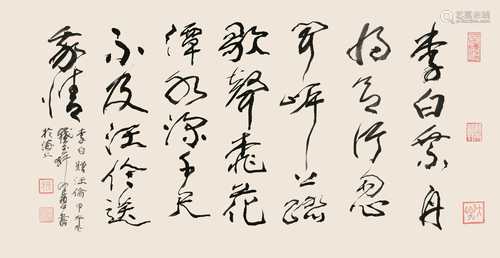 李白乘舟
将欲行忽
闻岸上踏
歌声桃花
潭水深千尺
不及汪伦送
我情
李白赠汪伦